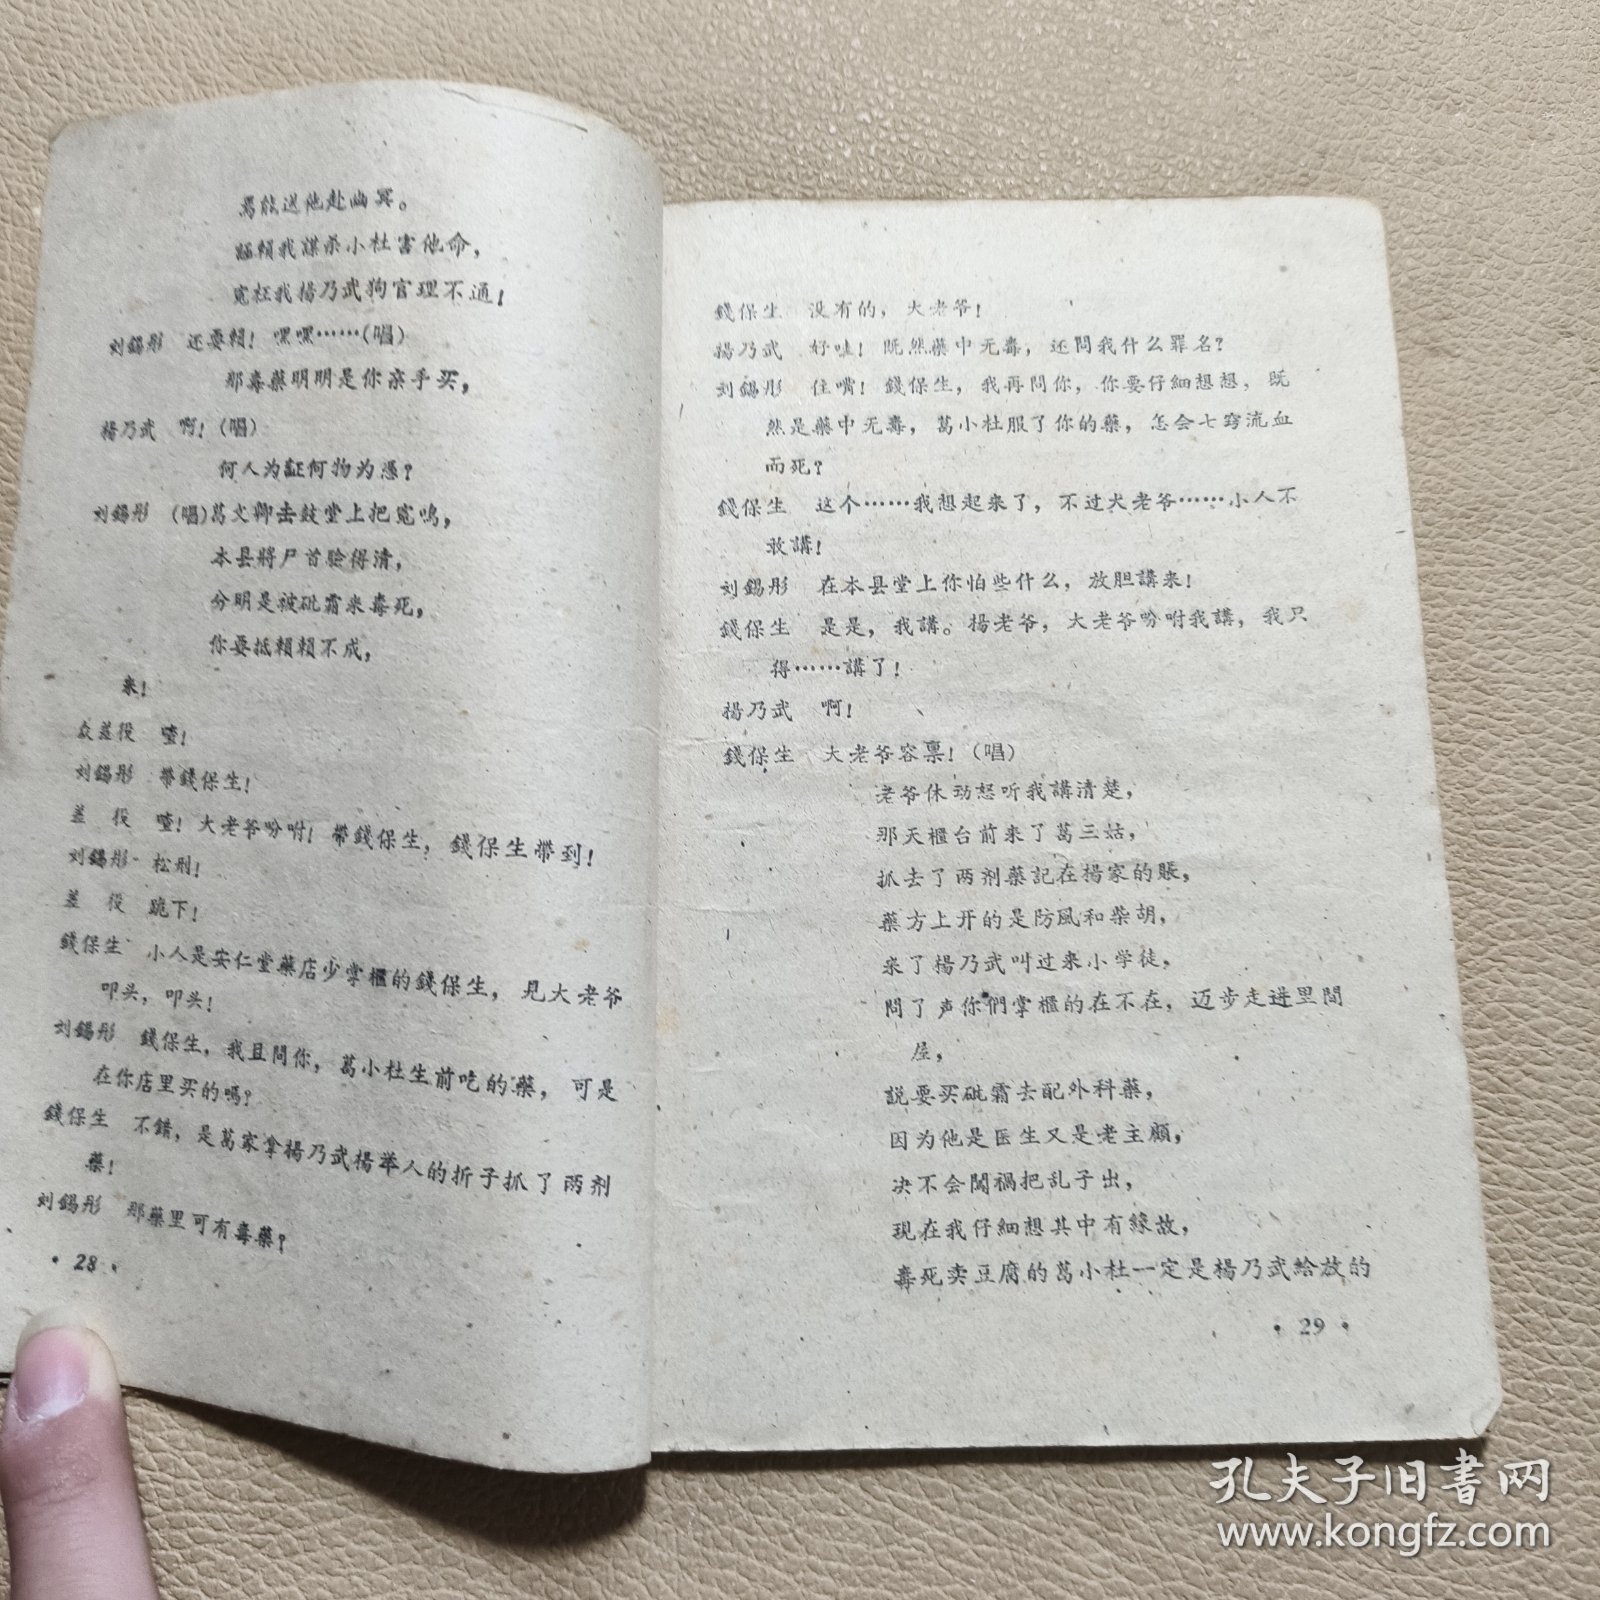 焉能送他赴幽冥。
誣賴我謀杀小杜害他命，
冤枉我楊乃武狗官理不通！
刘錫彤　还要賴！嘿嘿……（唱）
那毒藥明明是你亲手买，
楊乃武　啊！（唱）
何人为証何物为憑？
刘錫彤　（唱）葛文卿击鼓堂上把冤鳴，
本县將尸首驗得清，
分明是被砒霜来毒死，
你要抵賴賴不成，
来！
众差役　喳！
刘錫彤　帶錢保生！
差　役　喳！大老爷吩咐！帶錢保生，錢保生帶到！
刘錫彤　松刑！
差　役　跪下！
錢保生　小人是安仁堂藥店少掌櫃的錢保生，見大老爷
叩头，叩头！
刘錫彤　錢保生，我且問你，葛小杜生前吃的藥，可是
在你店里买的嗎？
錢保生　不錯，是葛家拿楊乃武楊举人的折子抓了两剂
藥！
刘錫彤　那藥里可有毒藥？
• 28 •
錢保生　沒有的，大老爷！
楊乃武　好哇！既然藥中无毒，还問我什么罪名？
刘錫彤　住嘴！錢保生，我再問你，你要仔細想想，既
然是藥中无毒，葛小杜服了你的藥，怎会七窍流血
而死？
錢保生　这个……我想起来了，不过大老爷……小人不
敢講！
刘錫彤　在本县堂上你怕些什么，放胆講来！
錢保生　是是，我講。楊老爷，大老爷吩咐我講，我只
得……講了！
楊乃武　啊！
錢保生　大老爷容稟！（唱）
老爷休动怒听我講清楚，
那天櫃台前来了葛三姑，
抓去了两剂藥記在楊家的賬，
藥方上开的是防風和柴胡，
来了楊乃武叫过来小学徒，
問了声你們掌櫃的在不在，迈步走进里間
屋，
説要买砒霜去配外科藥，
因为他是医生又是老主顧，
决不会闖禍把乱子出，
現在我仔細想其中有緣故，
毒死卖豆腐的葛小杜一定是楊乃武給放的
• 29 •
孔夫子旧書网
www.kongfz.com